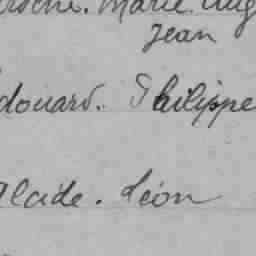 Marie Aug
Jean
douard. Philippe
lcide. Léon